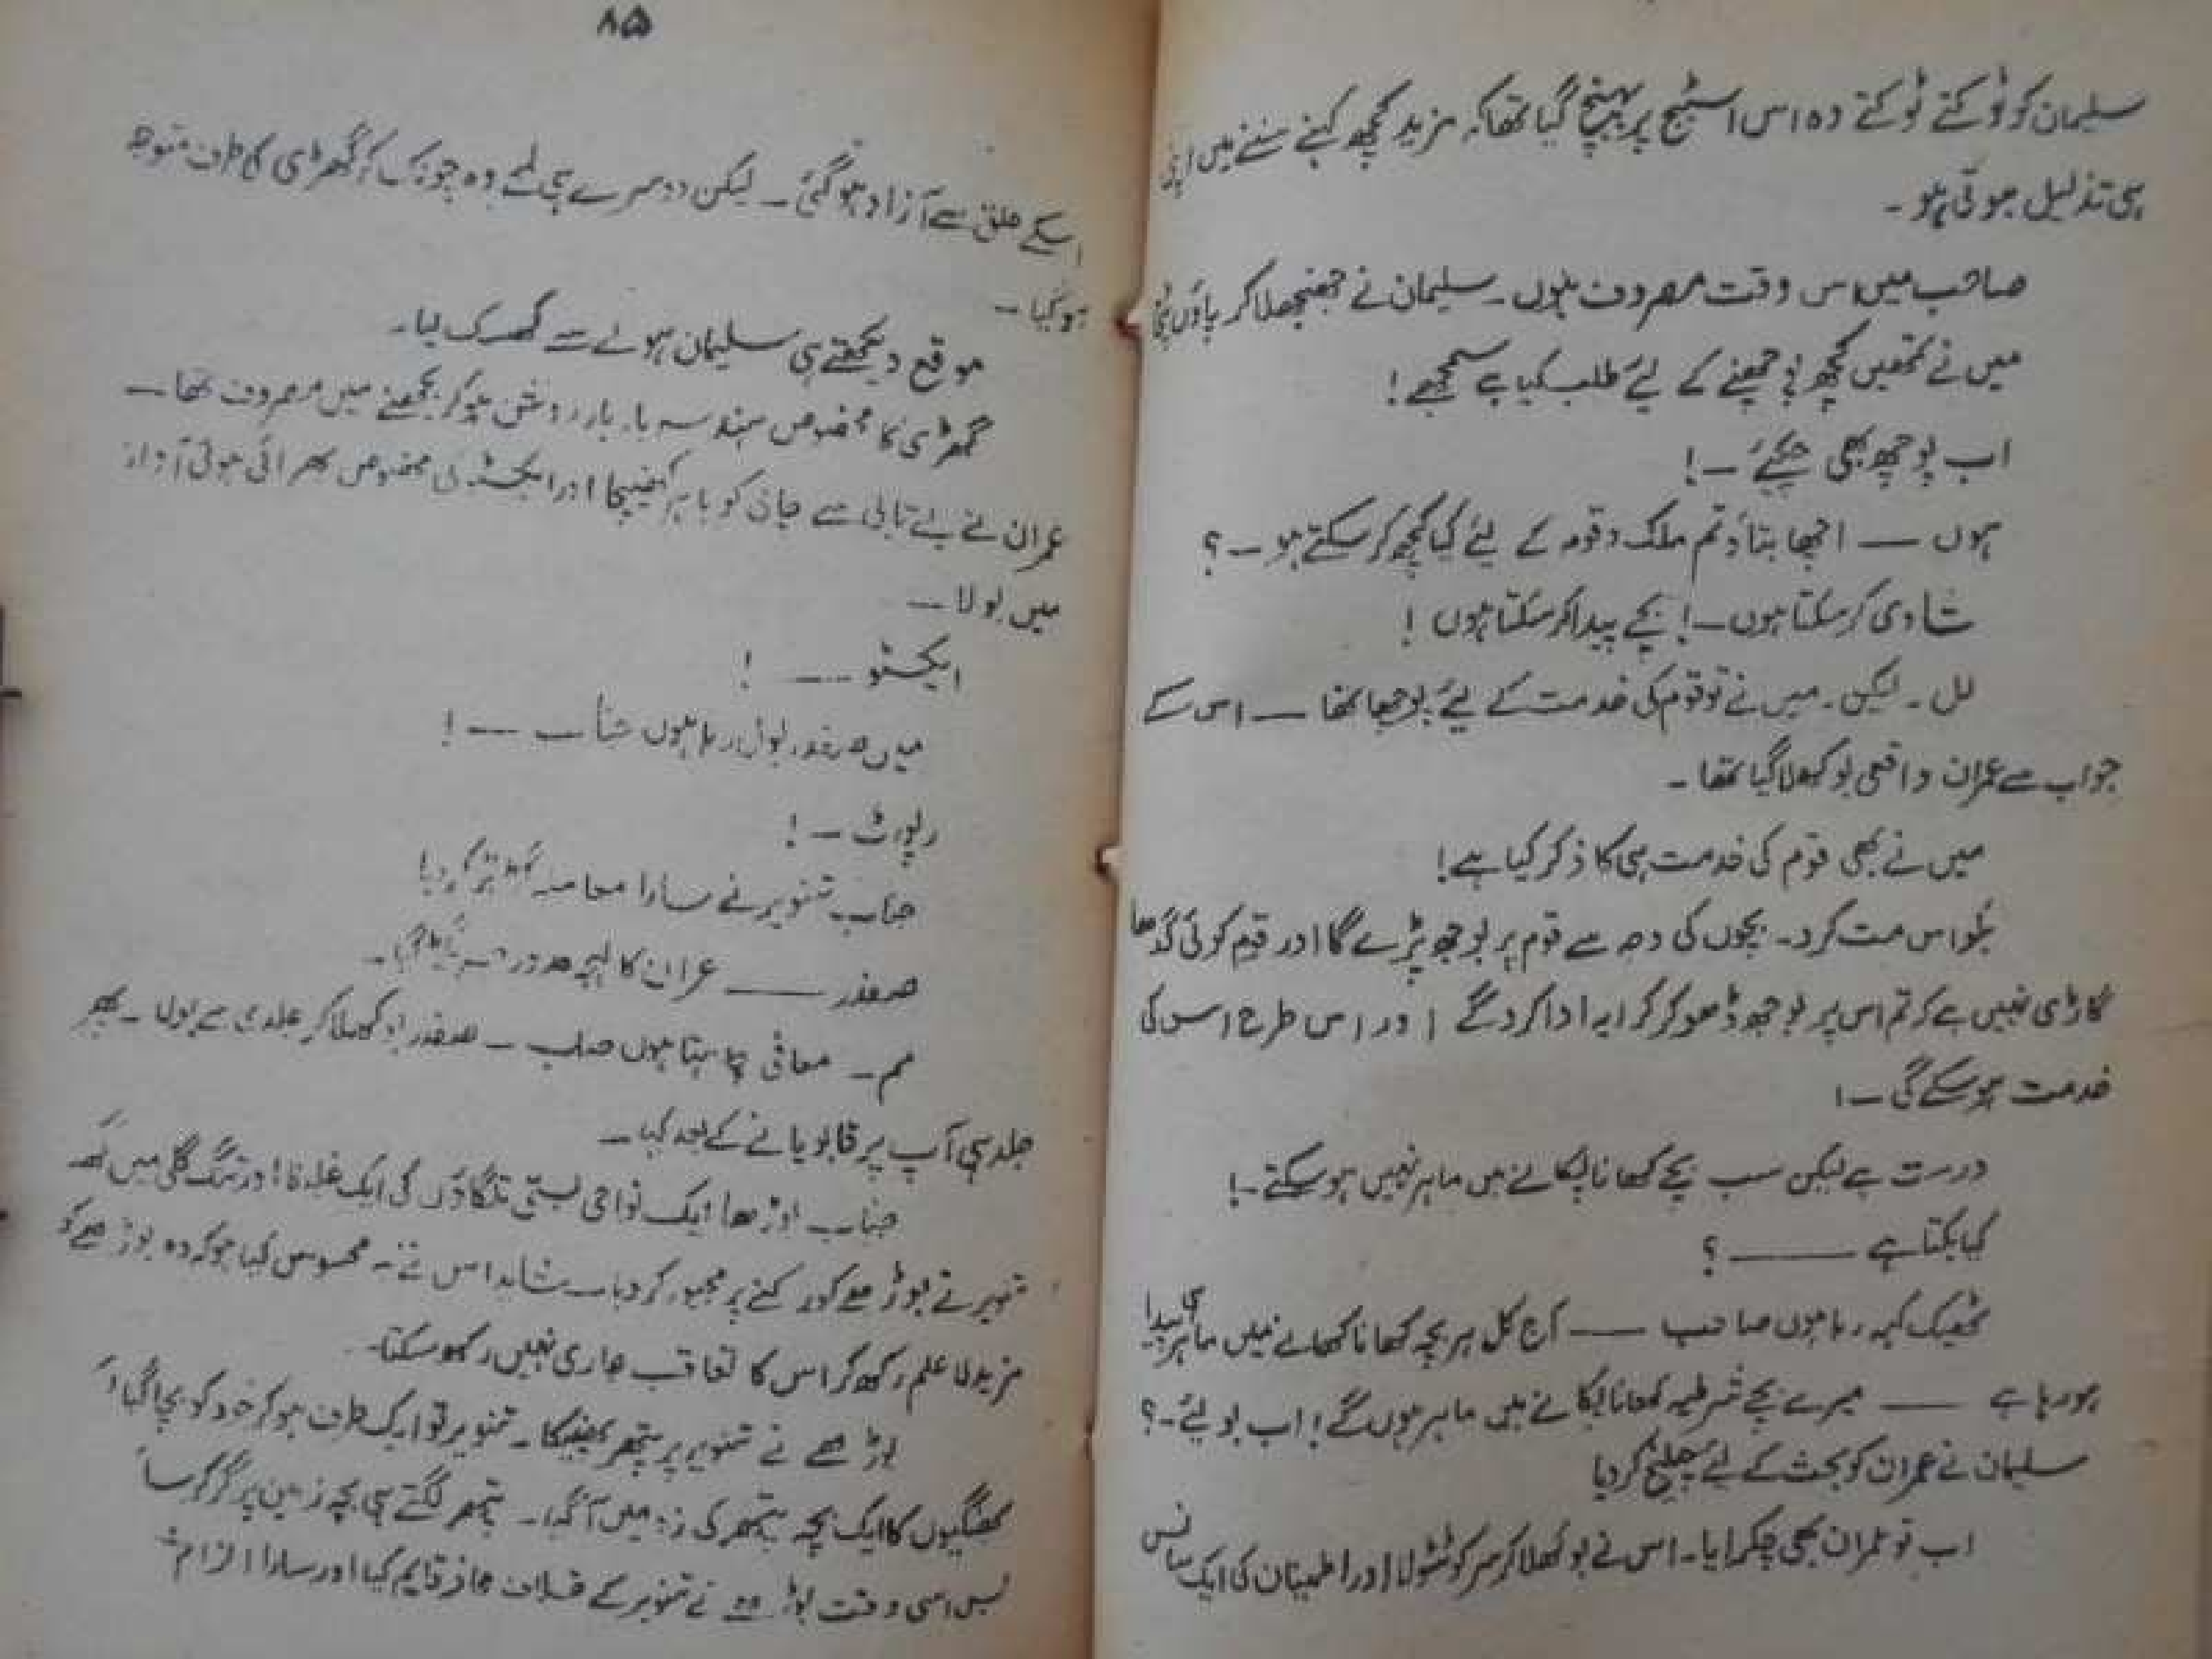 سلیمان کو ٹوکتے ٹوکتے وہ اس اسٹیج پر پہنچ گیا تھا کہ مزید کچھ کہنے سننے میں اپنی
ہی تذلیل ہوتی ہو۔
صاحب میں اس وقت مصروف ہوں۔ سلیمان نے جھنجھلا کر پاؤں پٹخے
میں نے تمھیں کچھ پوچھنے کے لئے طلب کیا ہے سمجھے!
اب پوچھ بھی چکئے ۔!
ہوں — اچھا بتاؤ تم ملک و قوم کے لئے کیا کچھ کر سکتے ہو ۔؟
شادی کر سکتا ہوں۔! بچے پیدا کر سکتا ہوں !
لل ۔ لیکن ۔ میں نے تو قوم کی خدمت کے لئے پوچھا تھا — اس کے
جواب سے عمران واقعی بوکھلا گیا تھا ۔
میں نے بھی قوم کی خدمت ہی کا ذکر کیا ہے!
بکواس مت کرو۔ بچوں کی وجہ سے قوم پر بوجھ پڑے گا اور قوم کوئی گدھا
گاڑی نہیں ہے کہ تم اس پر بوجھ ڈھو کر کرایہ ادا کردگے اور اس طرح اس کی
خدمت ہو سکے گی ۔!
درست ہے لیکن سب بچے کھانا پکانے میں ماہر نہیں ہو سکتے ۔!
کیا بکتا ہے — ؟
ٹھیک کہہ رہا ہوں صاحب — آج کل ہر بچہ کھانا کھانے میں ماہر ہی پیدا
ہو رہا ہے — میرے بچے شرطیہ کھانا پکانے میں ماہر ہوں گے! اب بولیئے ۔؟
سلیمان نے عمران کو بحث کے لئے چیلنج کر دیا
اب تو عمران بھی چکرایا۔ اس نے بوکھلا کر سر کو ٹٹولا اور اطمینان کی ایک سانس
۸۵
اسکے حلق سے آزاد ہو گئی ۔ لیکن دوسرے ہی لمحے وہ چونک کر گھڑی کی طرف متوجہ
ہو گیا ۔
موقع دیکھتے ہی سلیمان ہولے سے کھسک لیا۔
گھڑی کا مخصوص ہندسہ بار بار روشن ہو کر بجھنے میں مصروف تھا ۔
عمران نے بے تابی سے چابی کو باہر کھینچا اور ایکسٹو کی مخصوص بھرائی ہوئی آواز
میں بولا —
ایکسٹو — !
میں صفدر بول رہا ہوں جناب — !
رپورٹ — !
جناب تنویر نے سارا معاملہ کر دیا!
صفدر — عمران کا لہجہ
مم ۔ معافی چاہتا ہوں جناب ۔ صفدر بوکھلا کر جلدی سے بولا ۔ پھر
جلد ہی آپ پر قابو پانے کے بعد کہا ۔
جناب بوڑھا ایک نواحی بستی کی ایک اور تنگ گلی میں
تنویر نے بوڑھے کو رکنے پر مجبور کر دیا۔ شاید اس نے یہ محسوس کیا ہو کہ وہ بوڑھے کو
مزید لا علم رکھ کر اس کا تعاقب جاری نہیں رکھ سکتا۔
بوڑھے نے تنویر پر پتھر پھینکا ۔ تنویر تو ایک طرف ہو کر خود کو بچا گیا
بھنگیوں کا ایک بچہ پتھر کی زد میں آگیا ۔ پتھر لگتے ہی بچہ زمین پر گر گیا
بس اسی وقت بوڑھے نے تنویر کے خلاف محاذ قائم کیا اور سارا الزام